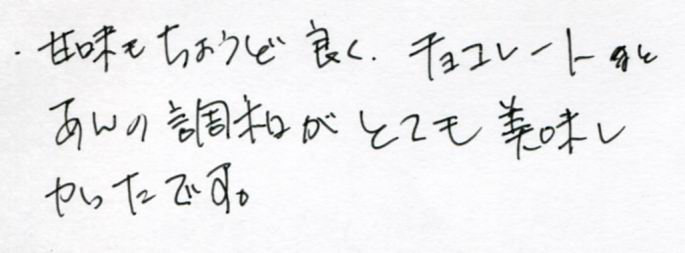 ・甘味もちょうど良く、チョコレートと
あんの調和がとても美味し
かったです。